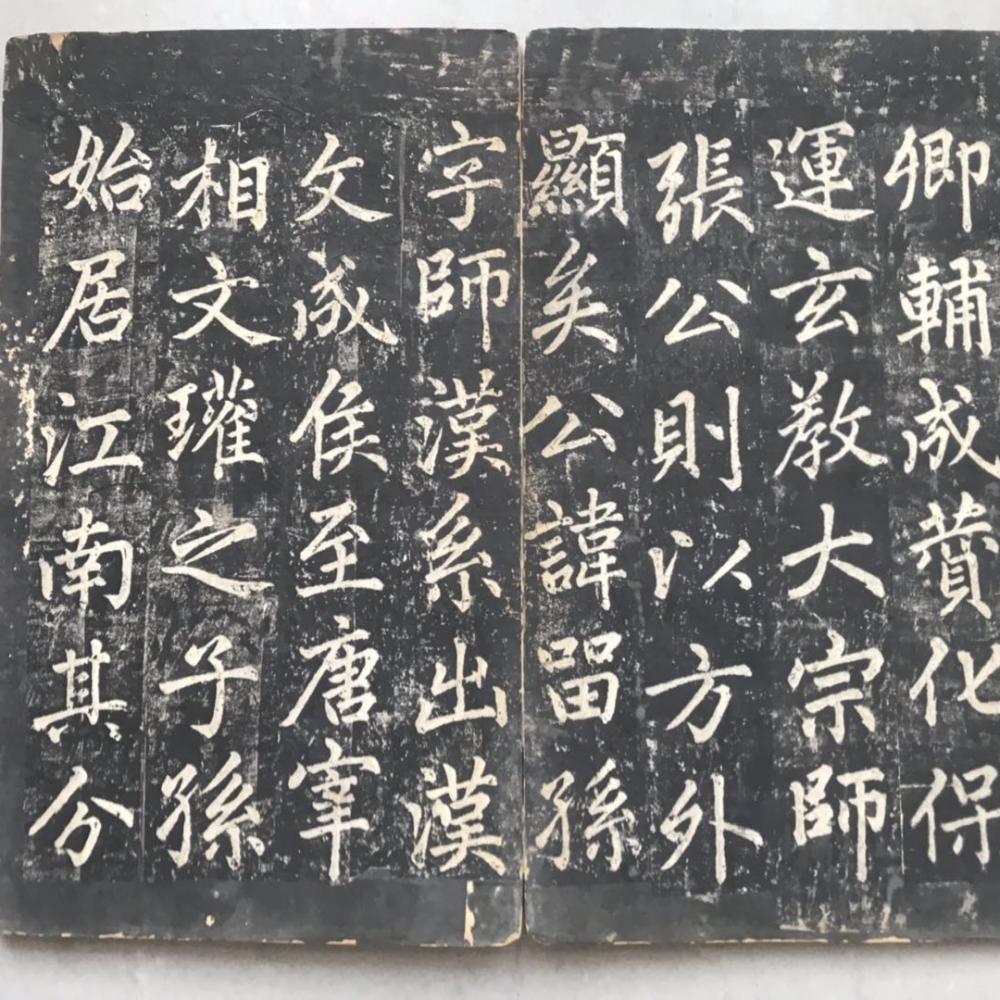 卿輔成賛化保
運玄教大宗師
張公則以方外
顯矣公諱畱孫
字師漢系出漢
文成侯至唐宰
相文瓘之子孫
始居江南其分